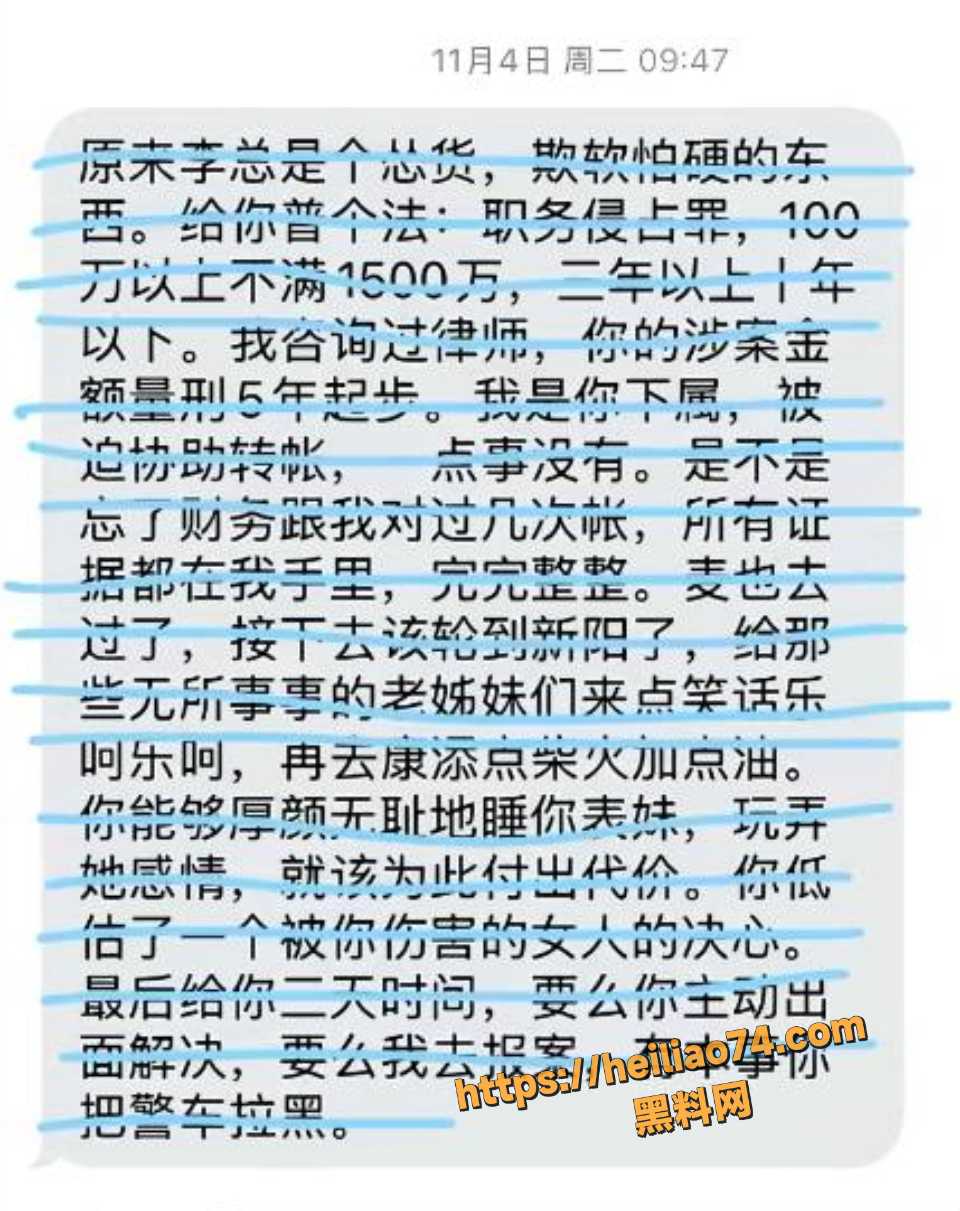 11月4日 周二 09:47
原来李总是个怂货，欺软怕硬的东
西。给你普个法：职务侵占罪，100
万以上不满1500万，三年以上十年
以下。我咨询过律师，你的涉案金
额量刑5年起步。我是你下属，被
迫协助转帐，　点事没有。是不是
忘了财务跟我对过几次帐，所有证
据都在我手里，完完整整。麦也去
过了，接下去该轮到新阳了，给那
些无所事事的老姊妹们来点笑话乐
呵乐呵，再去康添点柴火加点油。
你能够厚颜无耻地睡你表妹，玩弄
她感情，就该为此付出代价。你低
估了一个被你伤害的女人的决心。
最后给你三天时间，要么你主动出
面解决，要么我去报案，有本事你
把警车拉黑。
https://heiliao74.com
黑料网